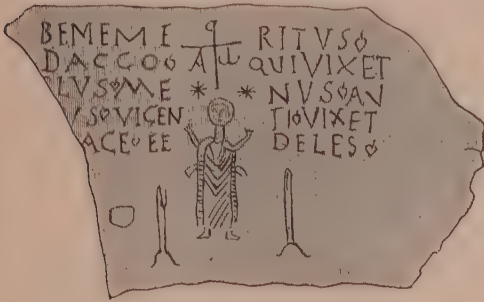 BEMEME RITVS◊
DACCO◊ A ω QVIVIXET
LVS◊ME * * NVS◊AN
VS◊VIGEN TI◊VIXET
ACE◊EE DELES◊